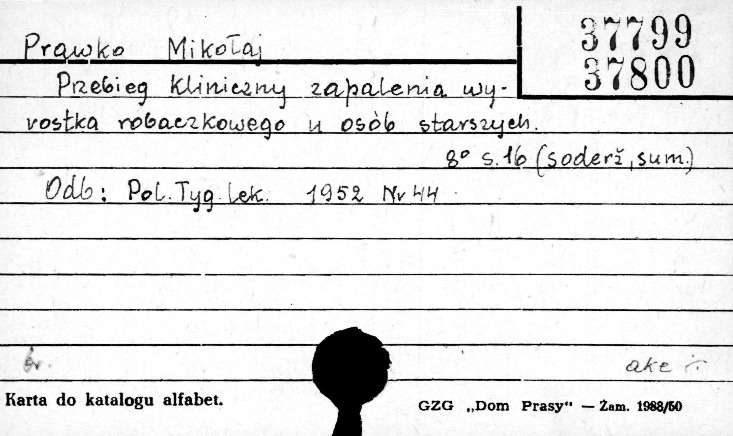 37799
37800
Prawko Mikołaj
Przebieg kliniczny zapalenia wy-
rostka robaczkowego u osób starszych.
8° s. 16 (soderž, sum.)
Odb: Pol. Tyg. lek. 1952 Nr 44
br. ake
Karta do katalogu alfabet.
GZG „Dom Prasy" — Żam. 1988/50